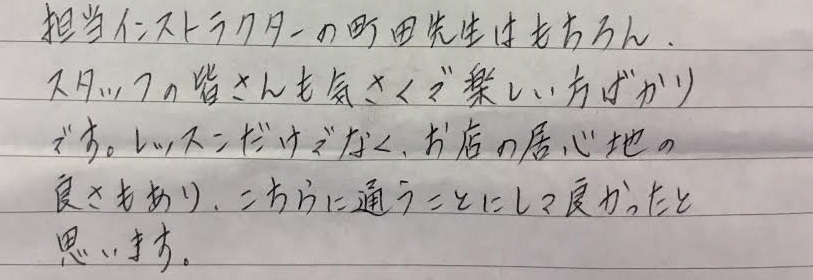 担当インストラクターの町田先生はもちろん、
スタッフの皆さんも気さくで楽しい方ばかり
です。レッスンだけでなく、お店の居心地の
良さもあり、こちらに通うことにして良かったと
思います。